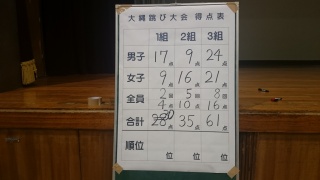 大縄跳び大会 得点表
1組 2組 3組
男子 17点 9点 24点
女子 9点 16点 21点
全員 2回 5回 8回
4点 10点 16点
合計 28 30点 35点 61点
順位 位 位 位